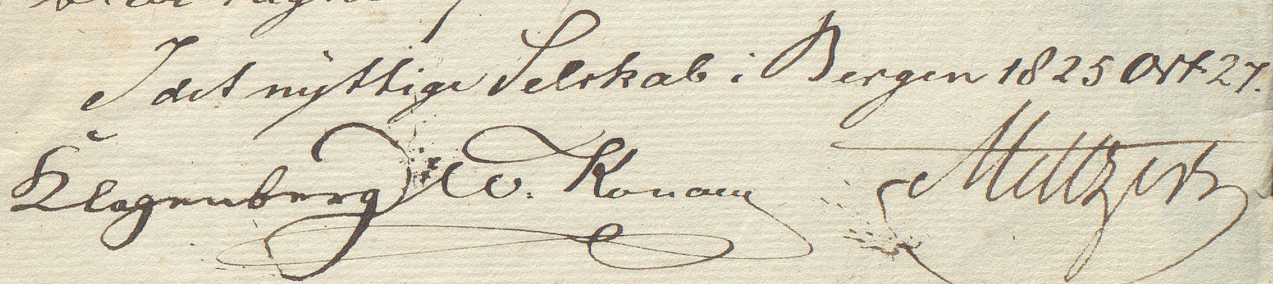 I det nyttige Selskab i Bergen 1825 Oct 27.
Klagenberg W. Konow Meltzer